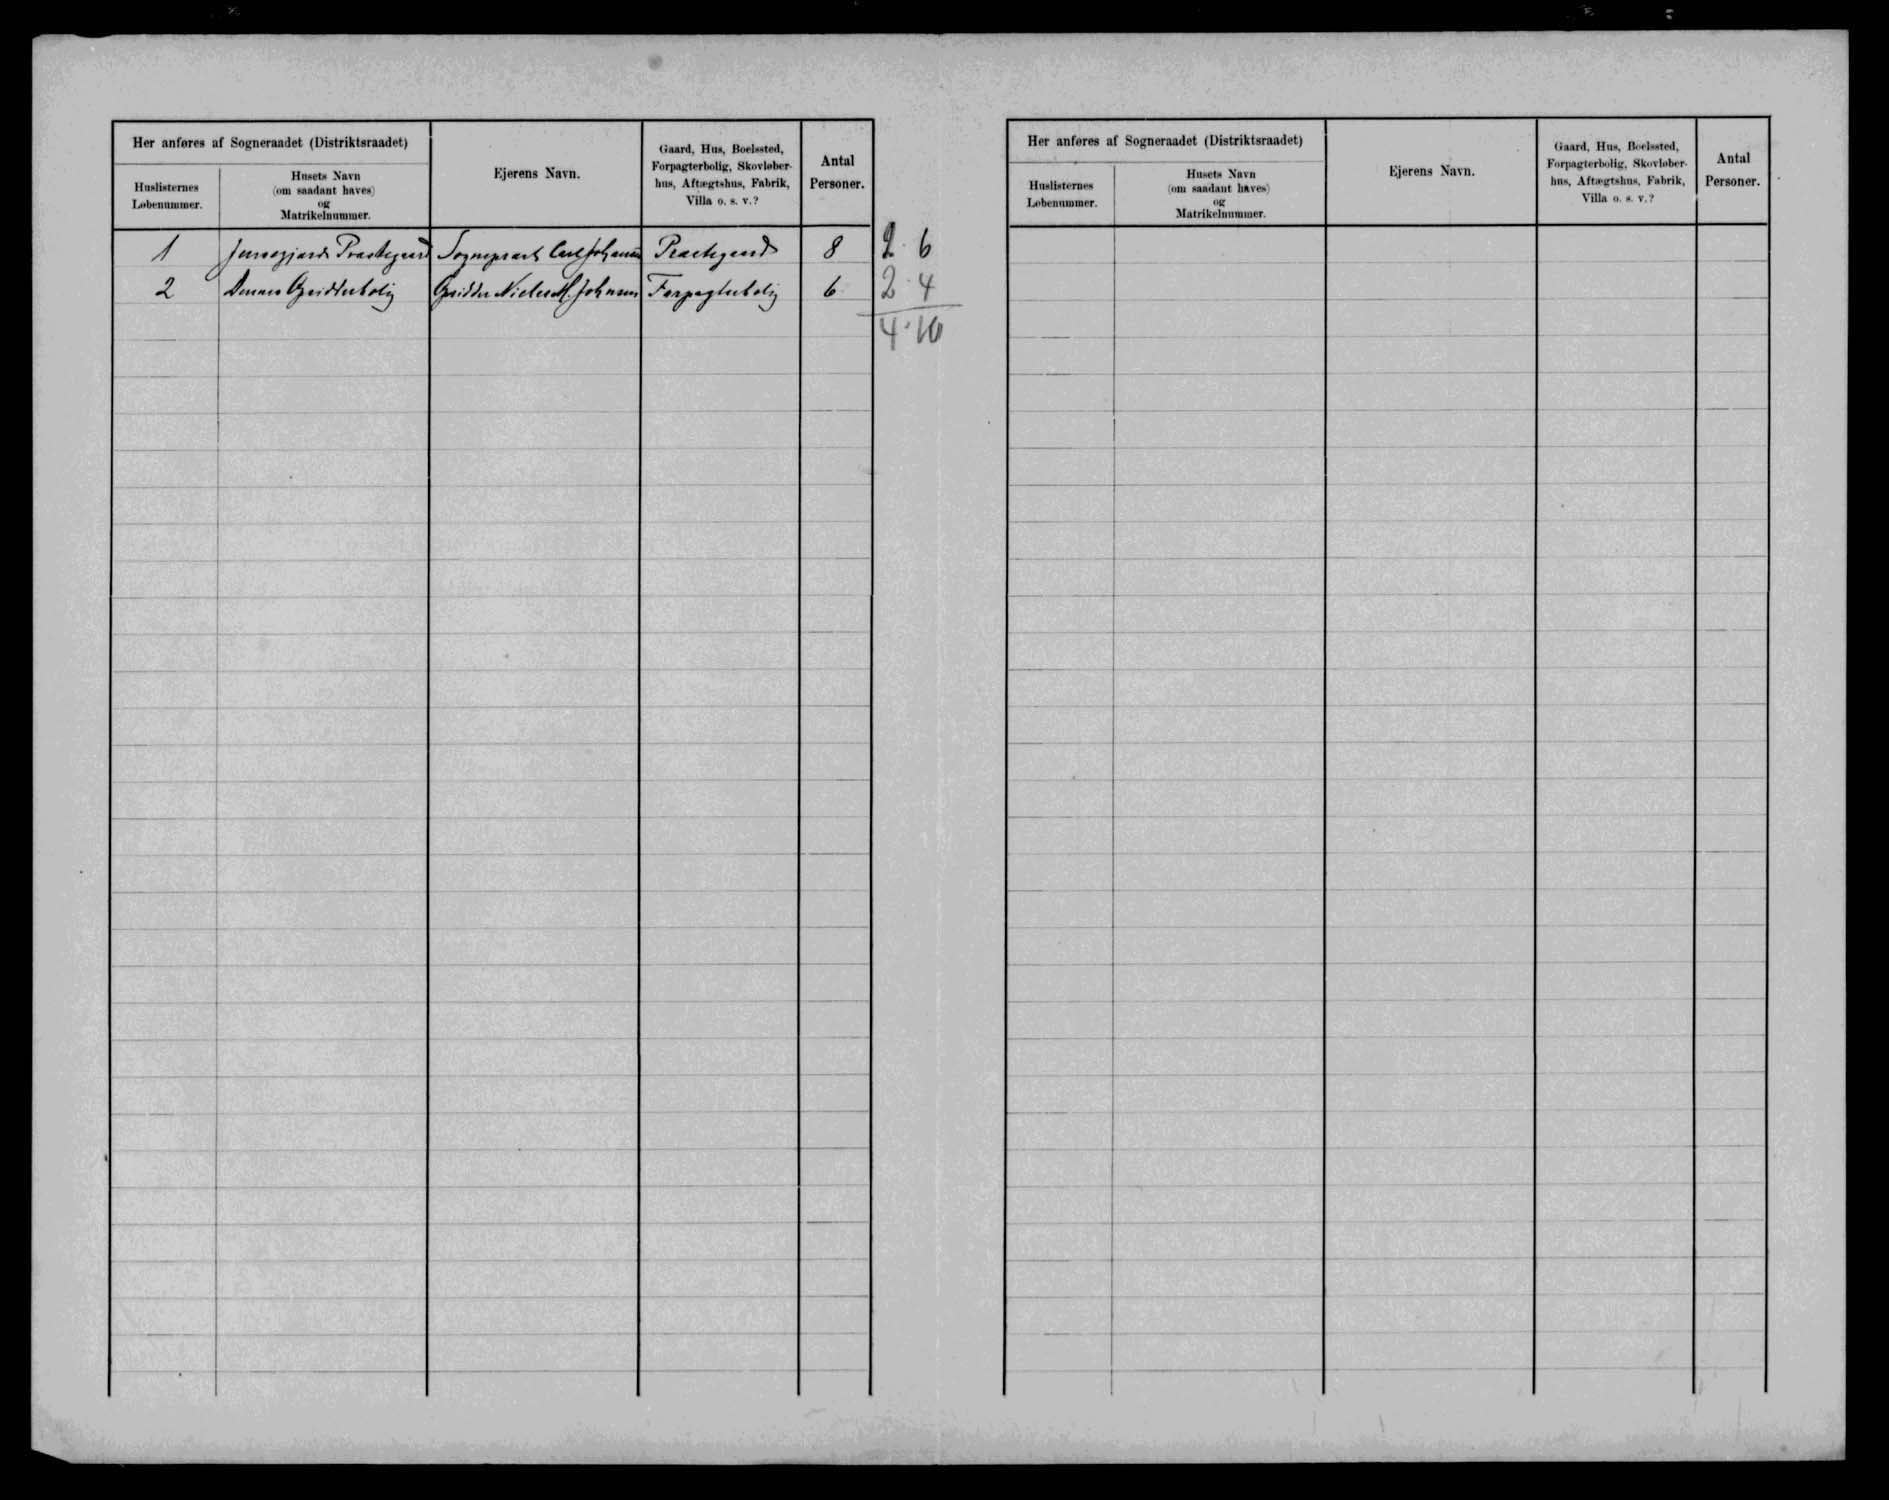 Her anføres af Sogneraadet (Distriktsraadet)
Huslisternes
Løbenummer.
Husets Navn
(om saadant haves)
og
Matrikelnummer.
Ejerens Navn.
Gaard, Hus, Boelssted,
Forpagterbolig, Skovløber-
hus, Aftægtshus, Fabrik,
Villa o. s. v.?
Antal
Personer.
1 Præstegaard Sognepræst Carl Præstegaard 8 2 · 6
2 Niels M. Johnsen Forpagterbolig 6 2 · 4
4 · 10
Her anføres af Sogneraadet (Distriktsraadet)
Huslisternes
Løbenummer.
Husets Navn
(om saadant haves)
og
Matrikelnummer.
Ejerens Navn.
Gaard, Hus, Boelssted,
Forpagterbolig, Skovløber-
hus, Aftægtshus, Fabrik,
Villa o. s. v.?
Antal
Personer.